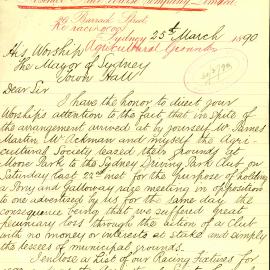 26 Barrack Street
Re racing on
Agricultural Grounds
Sydney 25th March 1890
His Worship
The Mayor of Sydney
Town Hall
Dear Sir
I have the honor to direct your
Worships attention to the fact that in spite of
the arrangement arrived at by yourself Mr James
Martin Mr Ackman and myself the Agri-
cultural Society leased their grounds at
Moore Park to the Sydney Driving Park Club on
Saturday last 22nd inst for the purpose of holding
a Pony and Galloway race meeting in opposition
to one advertised by us for the same day the
consequence being that we suffered great
pecuniary loss through the action of a Club
with no moneys or interests at stake and simply
the lessees of municipal grounds.
I enclose a list of our Racing fixtures for